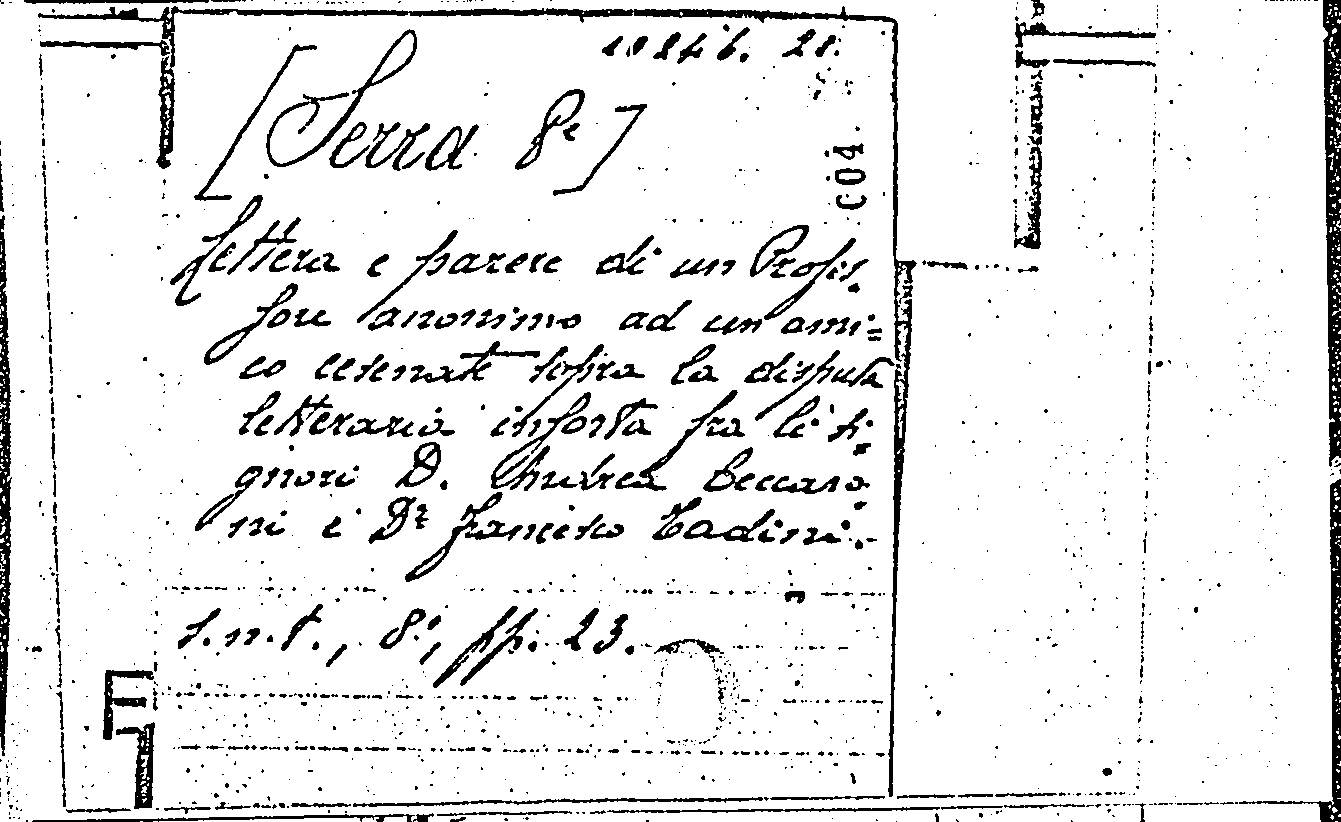 [Serra 8º]
C04
Lettera e parere di un Profes=
sore anonimo ad un ami=
co cesenate sopra la disputa
letteraria insorta fra li si=
gnori D. Andrea Ceccaro=
ni e Dr Francesco Tadini.-
s.n.t., 8º, pp. 23.